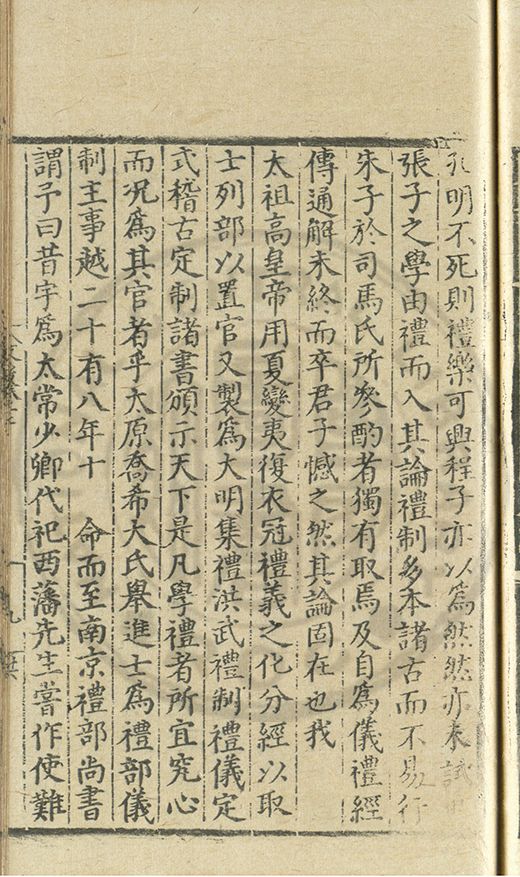 孔明不死則禮樂可興程子亦以爲然然亦未試也
張子之學由禮而入其論禮制多本諸古而不易行
朱子於司馬氏所參酌者獨有取焉及自爲儀禮經
傳通解未終而卒君子憾之然其論固在也我
太祖高皇帝用夏變夷復衣冠禮義之化分經以取
士列部以置官又製爲大明集禮洪武禮制禮儀定
式稽古定制諸書頒示天下是凡學禮者所宜究心
而况爲其官者乎太原喬希大氏舉進士爲禮部儀
制主事越二十有八年十 命而至南京禮部尚書
謂予曰昔宇爲太常少卿代祀西藩先生嘗作使難